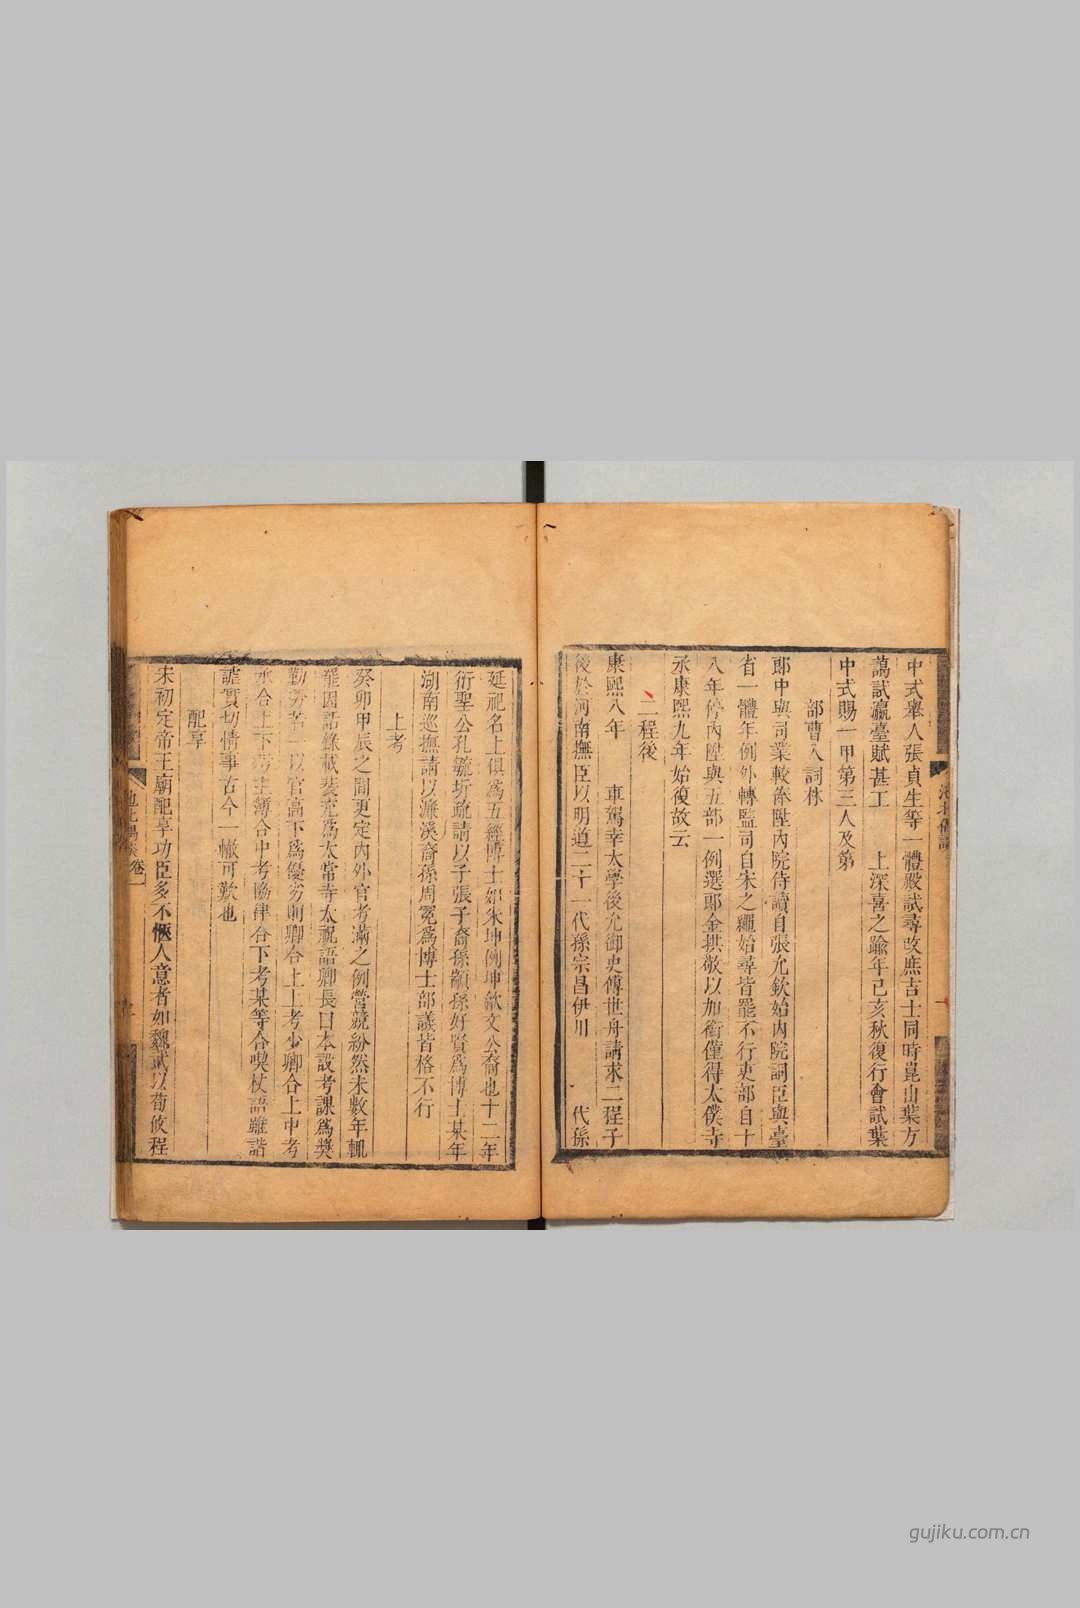 中式舉人張貞生等一體殿試尋改庶吉士同時崑山葉方
藹試瀛臺賦甚工　上深喜之踰年己亥秋復行會試葉
中式賜一甲第三人及第
部曹入詞林
郎中與司業較俸陞內院侍讀自張允欽始內院詞臣與臺
省一體年例外轉監司自宋之繩始尋皆罷不行吏部自十
八年停內陞與五部一例選郎金拱敬以加銜僅得太僕寺
丞康熙九年始復故云
二程後
康熙八年　車駕幸太學後允御史傅世舟請求二程子
後於河南撫臣以明道二十一代孫宗昌伊川　代孫
延祀名上俱為五經博士如朱坤例坤歙文公裔也十二年
衍聖公孔毓圻疏請以子張子裔孫顓孫好賢為博士某年
湖南巡撫請以濂溪裔孫周冕為博士部議皆格不行
上考
癸卯甲辰之間更定內外官考滿之例營競紛然未數年輒
罷因語錄載裴充為太常寺太祝語卿長曰本設考課為獎
勤勞若一以官高下為優劣則卿合上上考少卿合上中考
丞合上下考主簿合中考協律合下考某等合喫杖語雖諧
謔實切情事古今一轍可歎也
配享
宋初定帝王廟配享功臣多不愜人意者如魏武以荀攸程
池北偶談 卷一
池北偶談